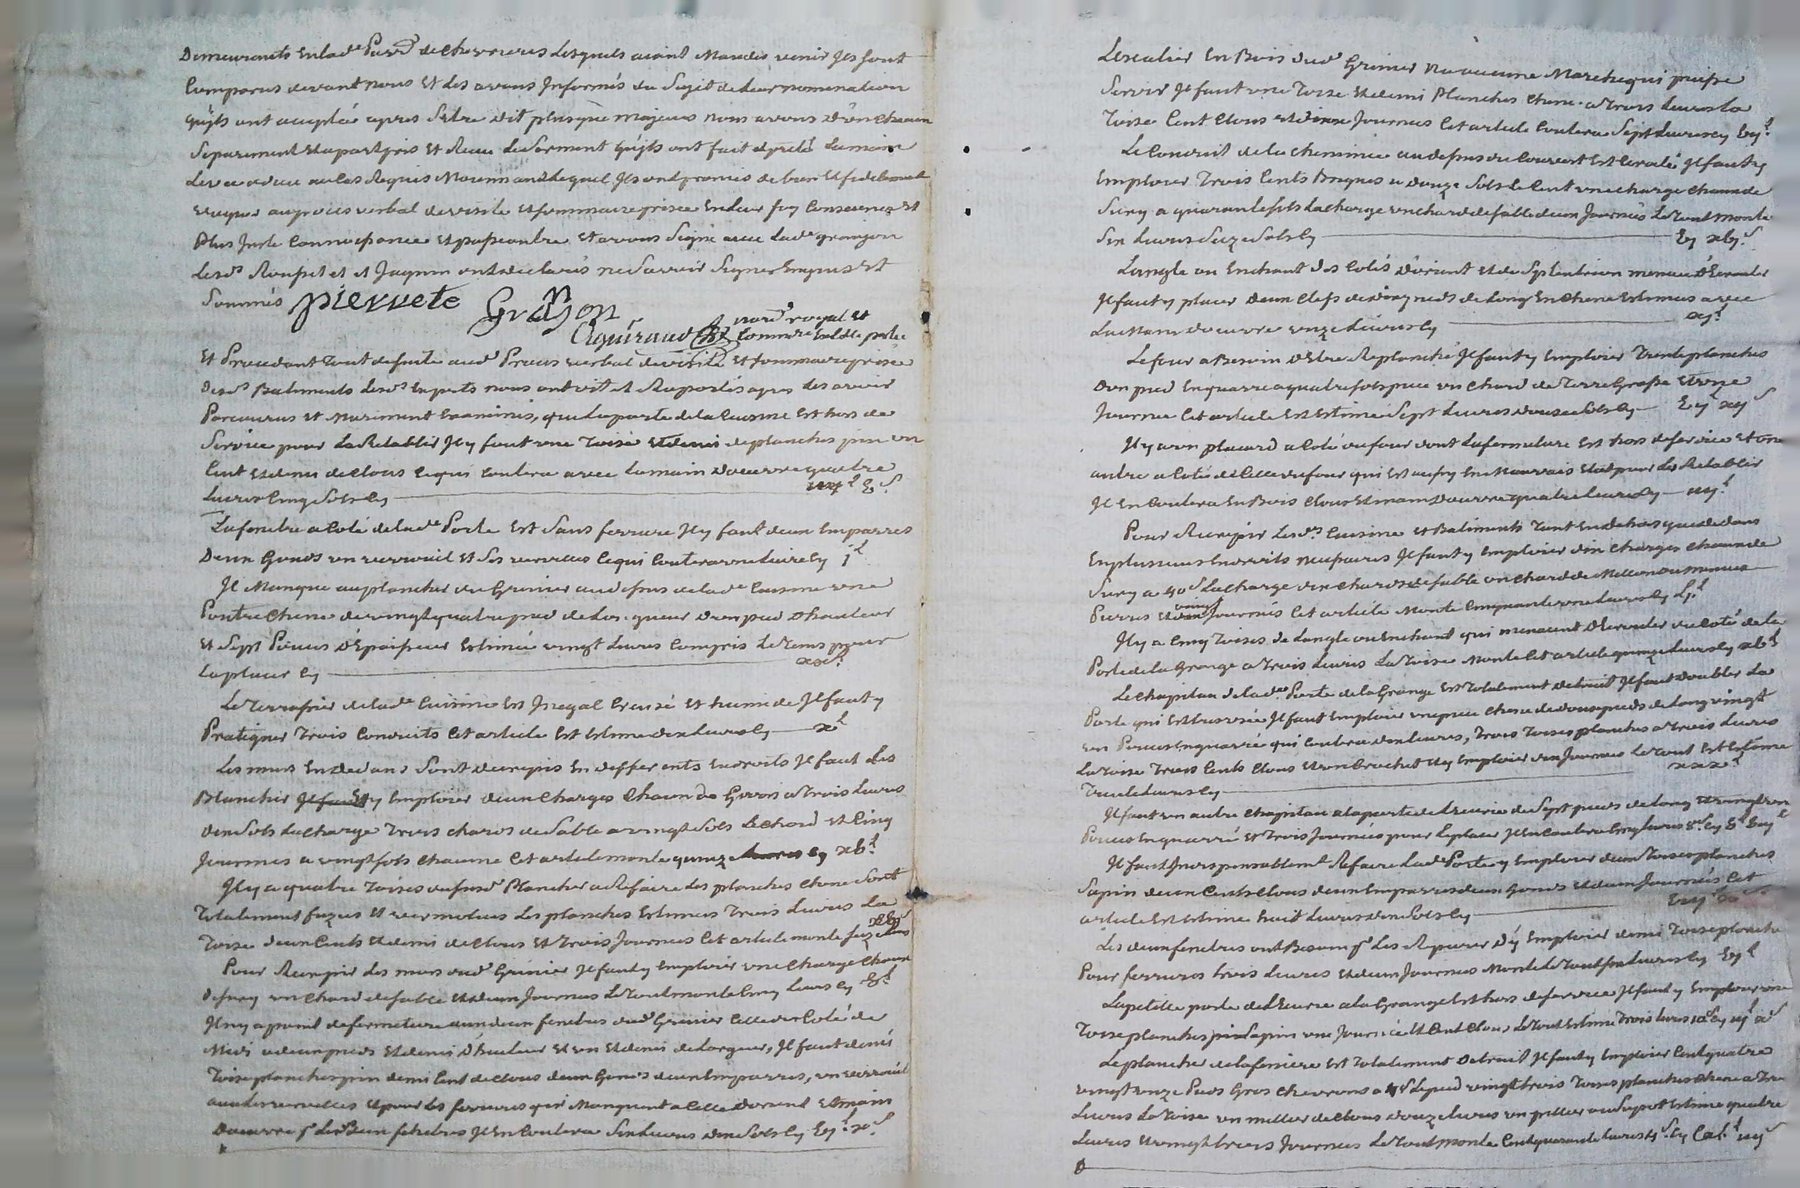 Demeurants en lad.e Par.se de chevrieres Lesquels aiant Mandés venir Ils sont
Comparus devant nous Et les avons Informés du Sujet de leur nomination
quils ont acceptée apres S'etre dit plus que majeurs nous avons d'un chacun
Separement Et a part pris Et Receu le Serment quils ont fait et preté la main
Levée a dieu au cas Requis Moiennant Lequel Ils ont promis de bien Et fidelement
vaquer au procès verbal de visite Et sommaire prisée En Leur foy Conscience Et
Plus Juste Connoissance Et Et avons Signé avec Lad.e grangon
Les.ds et Jaquin ont declarés ne Savoir Signer Enquis Et
Sommés pierrete Grangon
not.re royal Et
Comm.re
Et Procedant Tout de suite aud. Procès verbal de visite Et sommaire prisée
Des.ds Batiments Les.ds Experts nous ont dit et Raportés apres Les avoir
Parcourus Et Murement Examinés, que La porte de la Cuisine Est hors de
Service pour La Retablir Il y faut une Toise Et demi de planches pin un
Cent Et demi de Clous Ce qui Coutera avec La main d'oeuvre quatre
Livres Cinq Sols Cy
La fenetre a Coté de lad.e Porte Est Sans ferrure Il y faut deux Emparres
Deux Gonds un verrouil Et Ses vervelles Ce qui Coutera une Livre Cy j.l
Il Manque au plancher du Grenier au dessus de lad.e Cuisine une
Poutre Chene de vingt quatre pied de Longueur d'un pied d'hauteur
Et Sept Pouces D'Epaisseur Estimée vingt Livres Compris Le Tems pour
La placer Cy xx.l
Le Terrassier de lad.e Cuisine Est Inegal Creusé Et humide Il faut y
Pratiquer Trois Conduits Cet article Est Estimé dix Livres Cy x.l
Les murs En dedans Sont decrepis En differents Endroits Il faut Les
Blanchir Et y Emploier deux Charges Chaux de a Trois Livres
dix Sols La Charge Trois chards de Sable a vingt Sols Le Chard Et Cinq
Journées a vingt sols chacune Cet article monte quinze Livres Cy xb.l
Il y a quatre Toises du susd. Plancher a Refaire Les planches Chene Sont
Totalement fuzés Et vermolues Les planches Estimées Trois Livres La
Toise deux Cents Et demi de Clous Et Trois Journées Cet article monte
Pour Recrepir Les murs dud. Grenier Il faut y Emploier une Charge Chaux
de un Chard de Sable Et deux Journées Le Tout monte Cinq Livres Cy b.l
Il n'y a point de fermeture aux deux fenetres dud. Grenier Celle du Coté de
Midi a deux pieds Et demi D'hauteur Et un Et demi de Largeur, Il faut demi
Toise planches pin demi Cent de Clous deux Gonds deux Emparres, un verrouil
avec Les vervelles Et pour Les ferrures qui Manquent a Celle Et main
d'oeuvre p.r Les deux fenetres Il En Coutera Six Livres dix Sols Cy bj.l x.s
L'escalier En Bois dud. Grenier N'a aucune Marche qui puisse
Servir Il faut une Toise Et demi Planches Chene a Trois Livres La
Toise Cent Clous Et Journées Cet article Coutera Sept Livres Cy bij.l
Le Conduit de la Cheminée au dessus du Couvert Est Il faut y
Emploier Trois Cents Briques a douze Sols Le Cent une Charge Chaux de
Surg a quarante sols La charge un chard de sable deux Journées Le Tout monte
Six Livres Seize Sols Cy bj xbj.s
L'angle ou Enchant des Cotés D'orient Et de Septentrion menace D'Ecrouler
Il faut y placer deux Clefs de pieds de Long En Chene Estimées avec
La Main d'oeuvre onze Livres Cy xj.l
Le four a Besoin D'Etre Replanché Il faut y Emploier Trente planches
D'un pied En quarré a quatre sols piece un Chard de Terre Grasse Et une
Journée Cet article Est Estimé Sept Livres douze Sols Cy bij.l xij.s
Il y a un placard a Coté du four dont La fermeture Est hors de service Et une
autre a Coté de Celle du four qui Est aussy En Mauvais Etat pour Les Retablir
Il En Coutera En Bois Clous Et main d'oeuvre quatre Livres Cy iiij.l
Pour Recrepir Les.ds Cuisine Et Batiments Tant En dehors que dedans
En plusieurs Endroits Il faut y Emploier dix Charges Chaux de
Surg a 40.s La charge dix Chards de sable un Chard de Moellon ou Menues
Pierres Et vingt Journées Cet article Monte Cinquante une Livres Cy Lj.l
Il y a Cinq Toises de L'angle ou Enchant qui menacent D'Ecrouler du Coté de la
Porte de la Grange a Trois Livres La Toise Monte Cet article quinze Livres Cy xb.l
Le Chapitau de lad.e Porte de la Grange Est Totalement detruit Il faut doubler La
Porte qui Est Il faut Emploier une piece Chene de douze pieds de Long vingt
un Pouces En quarré qui Coutera dix Livres, Trois Toises planches a Trois Livres
La Toise Trois Cents Clous Et un Crochet Et y Emploier dix Journées Le Tout Est Estimé
Trente Livres Cy xxx.l
Il faut un autre Chapitau a la porte de L'Ecurie de Sept pieds de Long Et vingt un
Pouces En quarré Et Trois Journées pour Le placer Il En Coutera Cinq Livres
Il faut Indispensablem.t Refaire Lad.e Porte y Emploier deux Toises planches
Sapin deux Cents Clous deux Emparres deux Gonds Et deux Journées Cet
article Est Estimé huit Livres dix Sols Cy biij.l x.s
Les deux fenetres ont Besoin p.r Les Reparer D'y Emploier demi Toise planche
Pour ferrures trois Livres Et deux Journées Monte Le Tout Six Livres Cy bj.l
La petite porte de L'Ecurie a la Grange Est hors de service Il faut y Emploier une
Toise planches Sapin une Journée Et Cent Clous Le Tout Estimé Trois Livres 10.s Cy iij.l x.s
Le plancher de la feniere Est Totalement Detruit Il faut y Emploier Cent quatre
vingt onze Pieds Gros Chevrons a Le pied vingt trois Toises planches Chene a Trois
Livres La Toise un millier de Clous douze Livres un pillier au Supot Estimé quatre
Livres Et vingt trois Journées Le Tout monte Cent quarante Livres